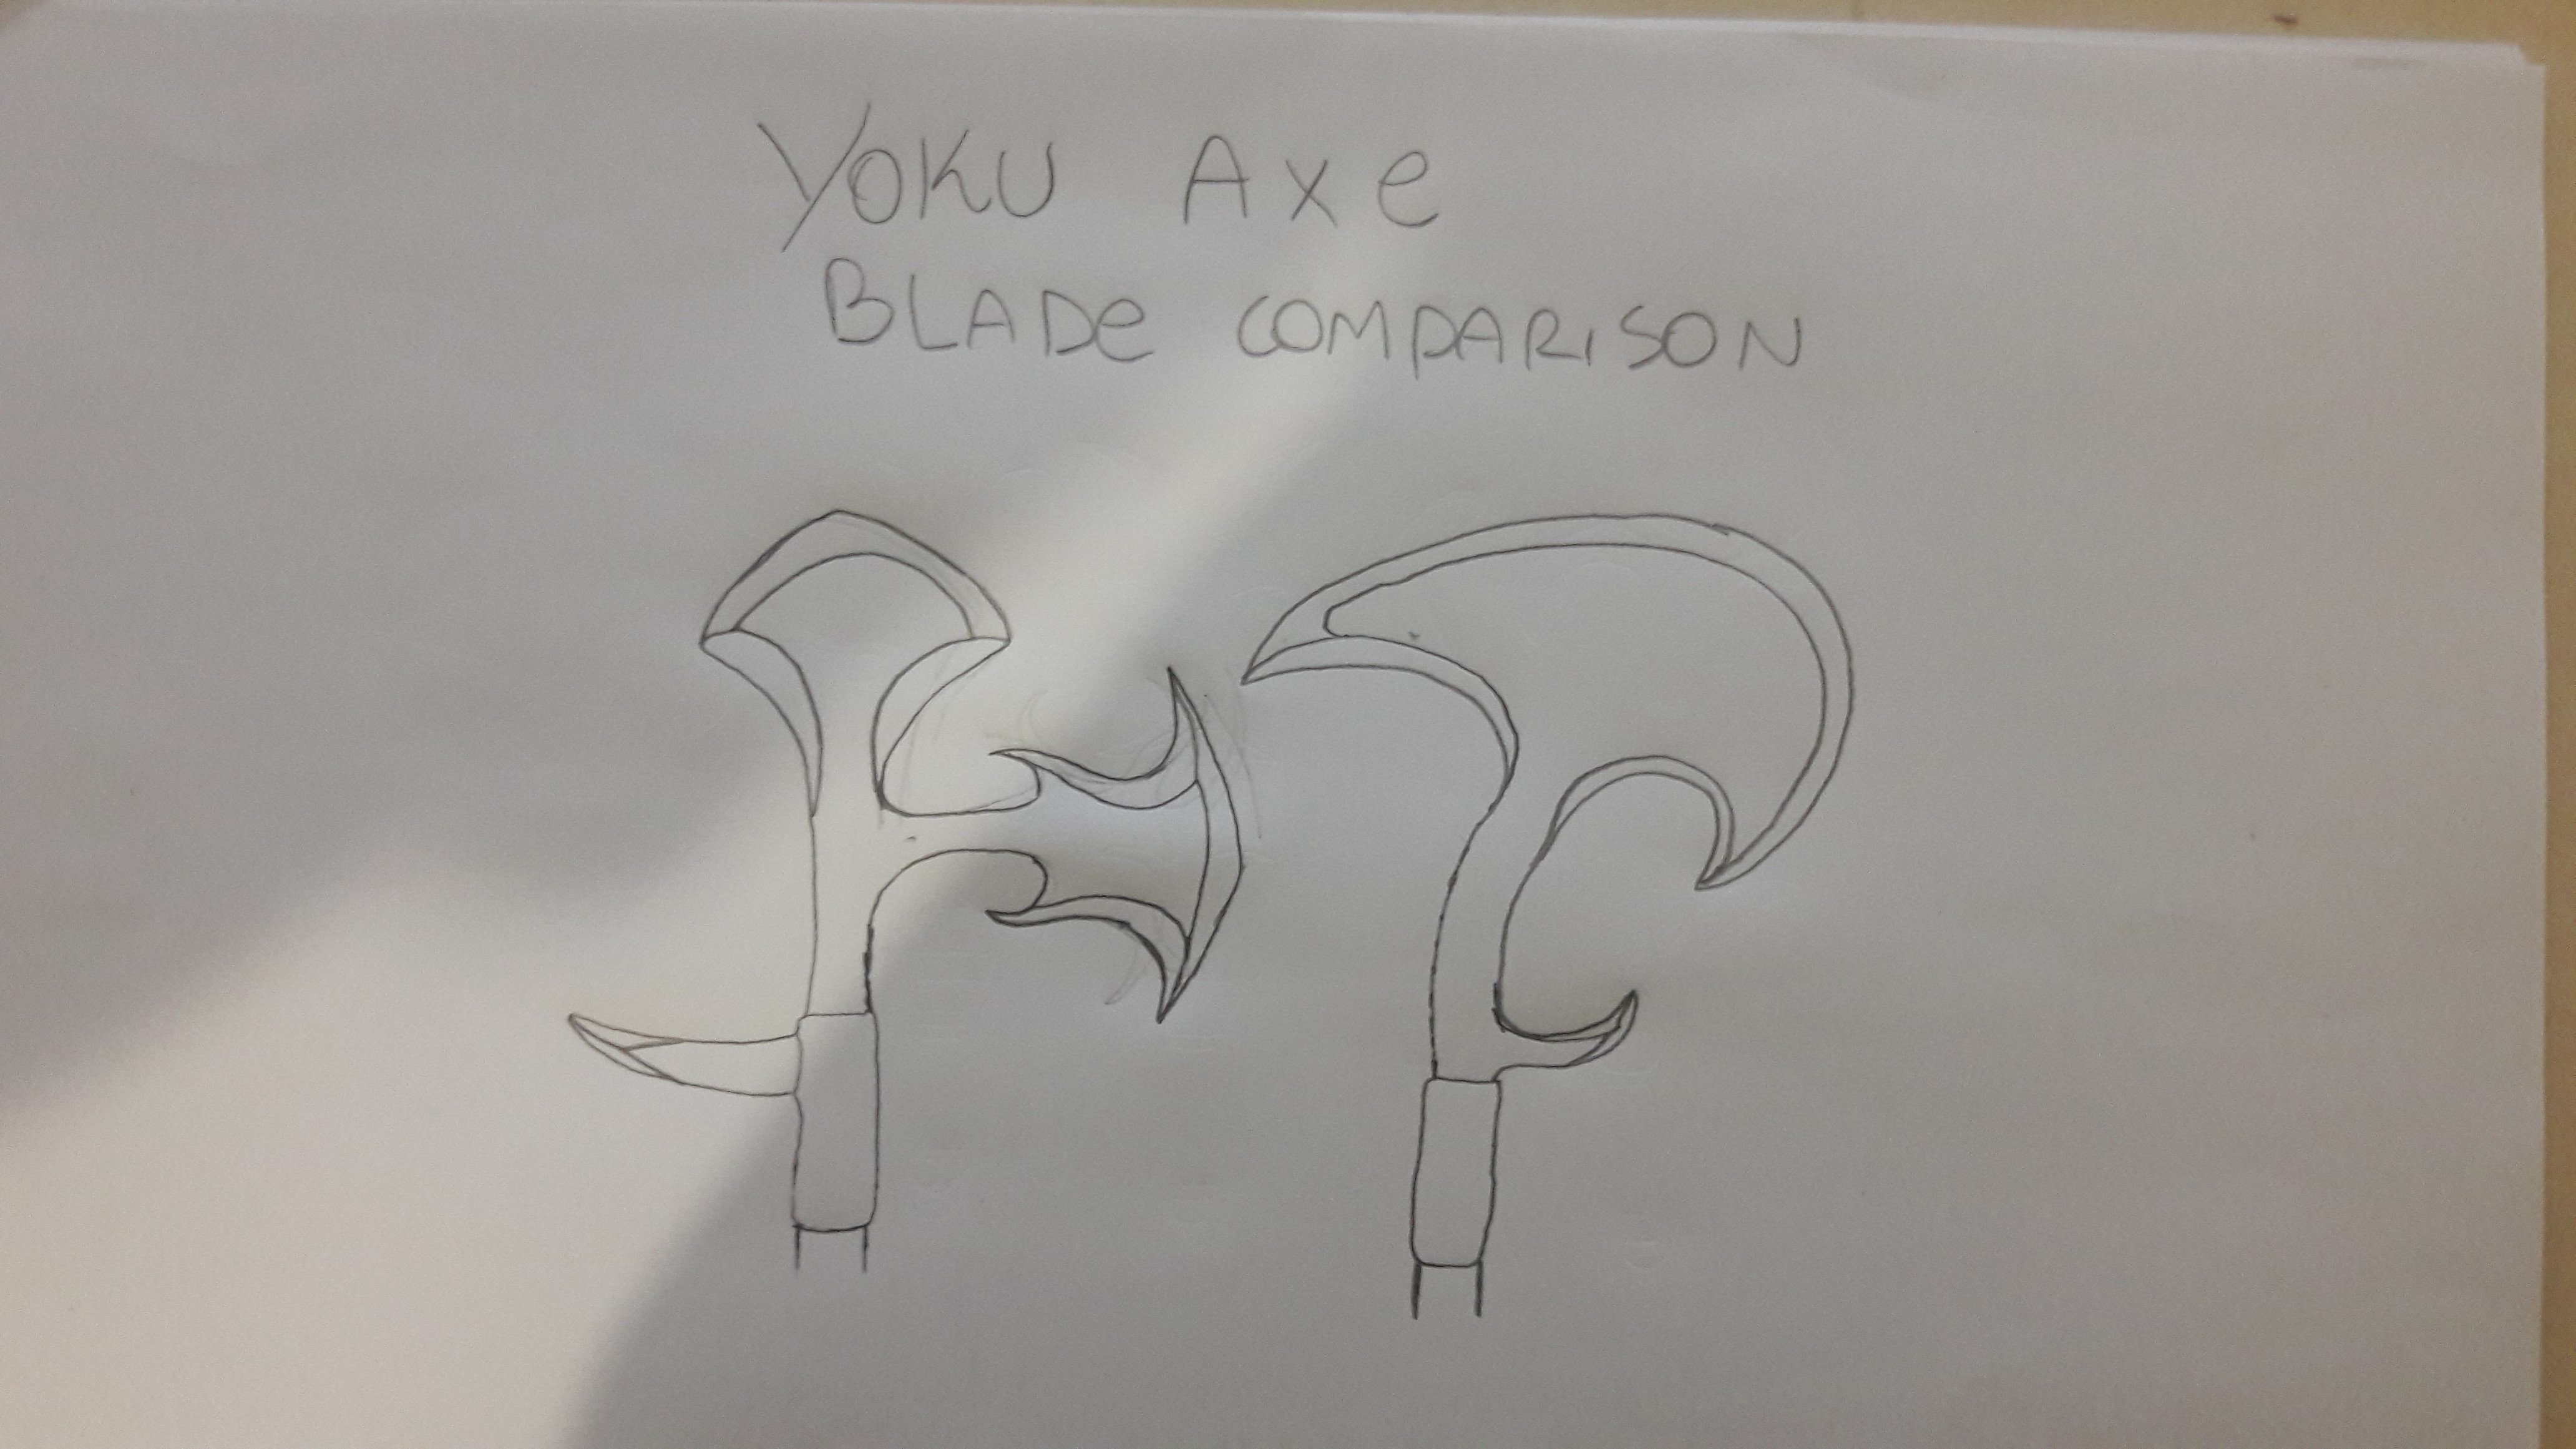 YOKU AXe
BLADe COMPARISON